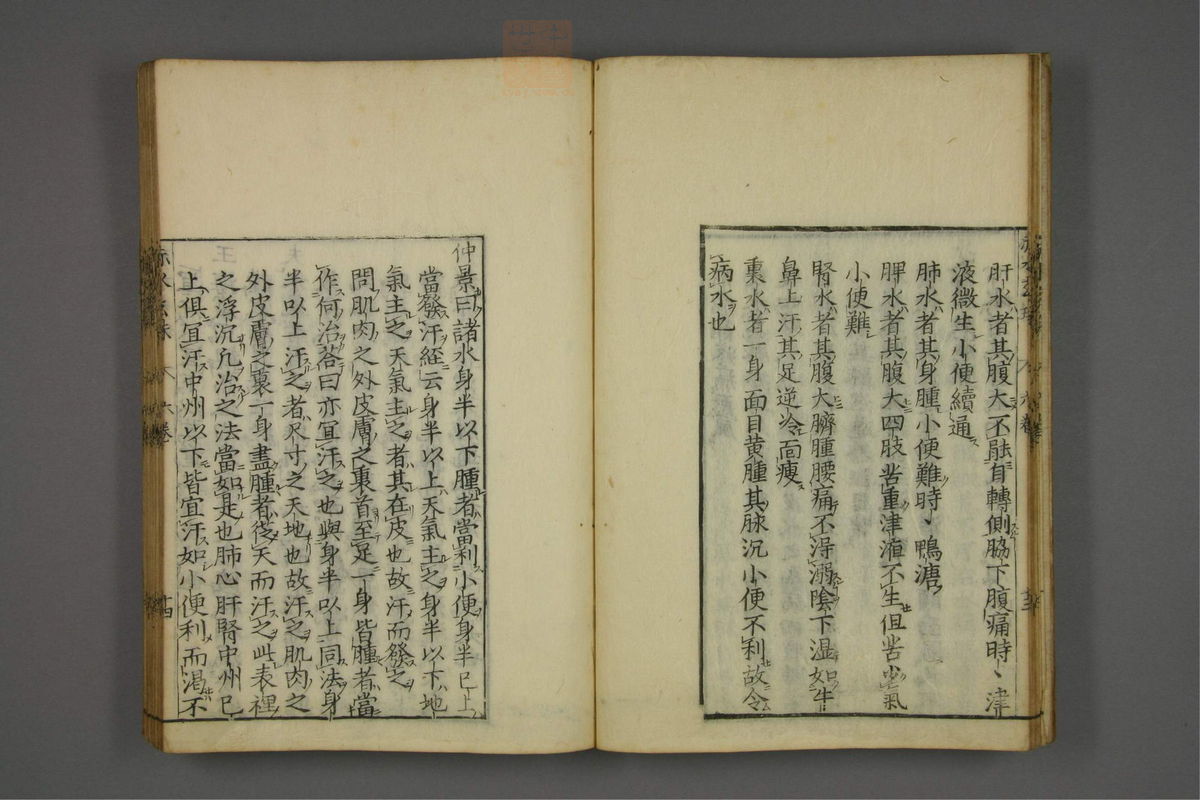 肝水者其腹大不能自轉側脇下腹痛時〻津
液微生小便續通
肺水者其身腫小便難時〻鴨溏
脾水者其腹大四肢苦重津液不生但苦少氣
小便難
腎水者其腹大臍腫腰痛不得溺陰下湿如牛
鼻上汗其足逆冷面瘦
裏水者一身面目黄腫其脉沉小便不利故令
病水也
仲景曰諸水身半以下腫者當利小便身半已上
當發汗經云身半以上天氣主之身半以下地
氣主之天氣主之者其在皮也故汗而發之
問肌肉之外皮膚之裏首至足一身皆腫者當
作何治荅曰亦宜汗之也與身半以上同法身
半以上汗之者尺寸之天地也故汗之肌肉之
外皮膚之裏一身盡腫者從天而汗之此表裡
之浮沉凢治之法當如是也肺心肝腎中州已
上俱宜汗中州以下皆宜汗如小便利而渇不